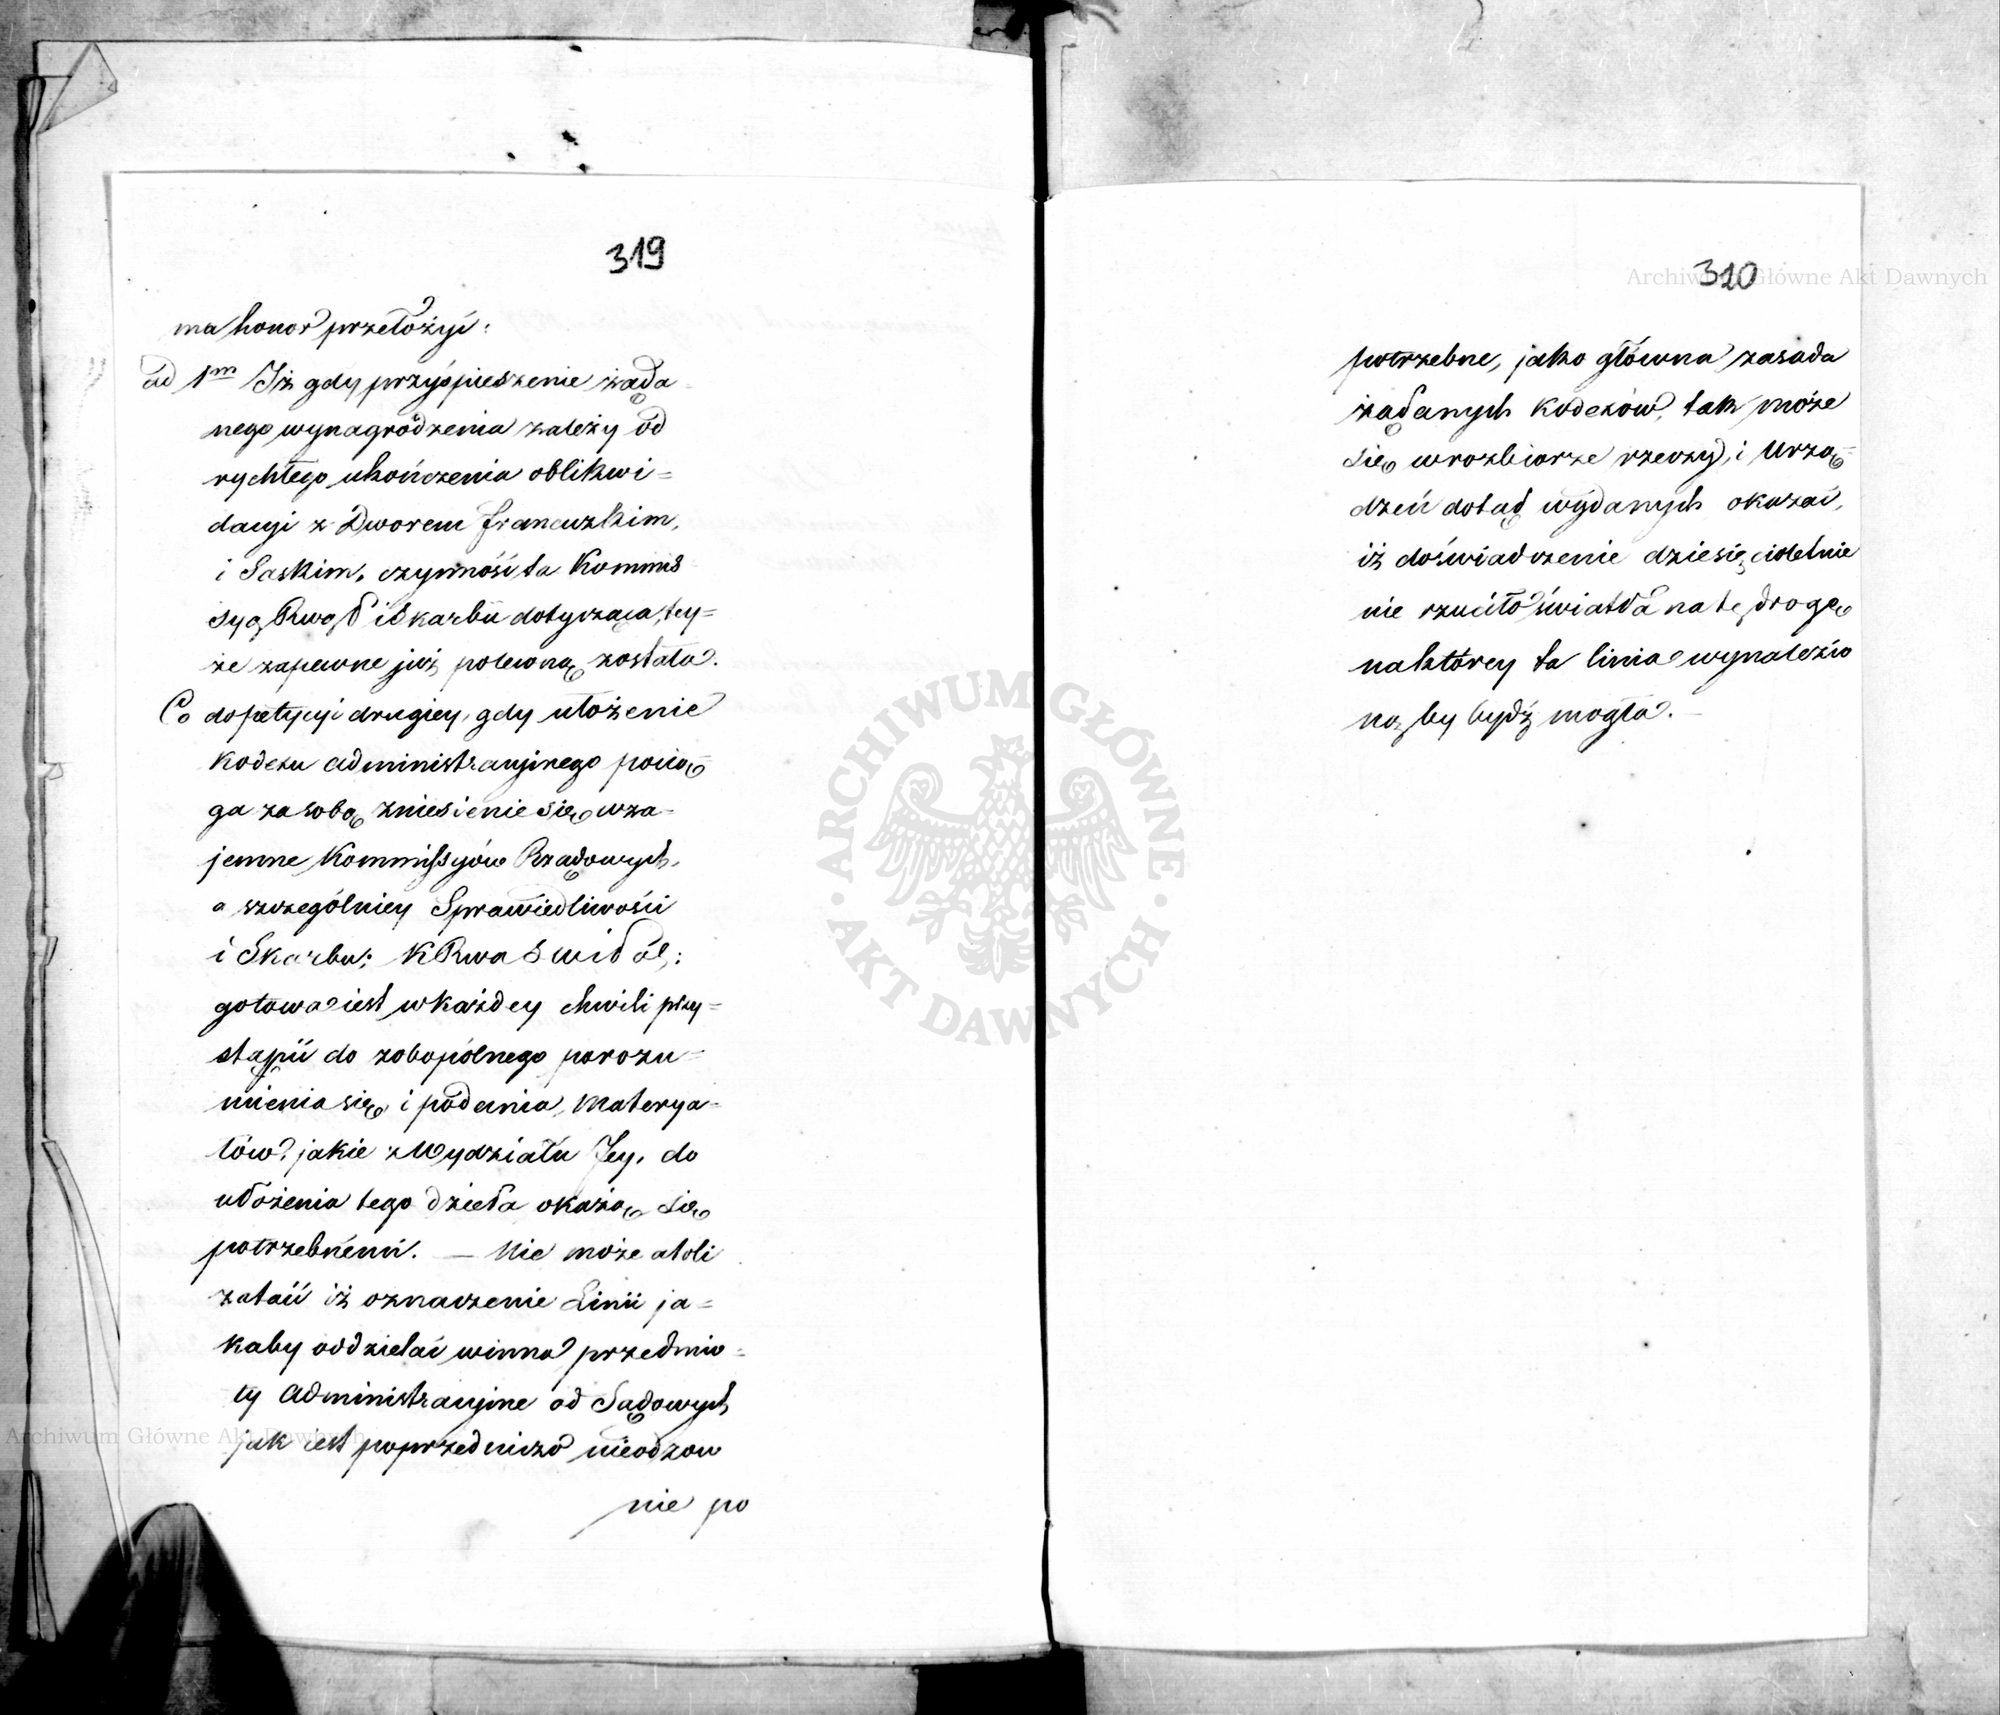 319
ma honor przełożyć:
ad 1m Iż gdy przyśpieszenie żąda
nego wynagrodzenia zależy od
rychłego ukończenia oblikwi=
dacyi z Dworem francuzkim,
i Saskim, czynność ta Kommis
syą Rwą P i Skarbu dotycząca, tey=
że zapewne już poleconą została.
Co do petycyi drugiey, gdy ułożenie
kodexu administracyjnego pocią=
ga za sobą zniesienie się wza=
jemne Kommissyów Rządowych,
a szczególniey Sprawiedliwości
i Skarbu; K Rwa S W i Pol;
gotowa iest w każdey chwili przy=
stąpić do zobopólnego porozu=
mienia się i podania, materya=
łów jakie z Wydziału Jey, do
ułożenia tego dzieła okażą się
potrzebnemi. — Nie może atoli
zataić iż oznaczenie Linii ja=
kaby oddzielać winna przedmio=
ty administracyjne od Sądowych
jak iest poprzedniczo nieodzow
nie po
320
potrzebne, jako główna zasada
żądanych kodexów, tak może
się w rozbiorze rzeczy, i Urzą=
dzeń dotąd wydanych okazać,
iż doświadczenie dziesięcioletnie
nie rzuciło światła na tę drogę
na którey ta linia wynalezio
ną by bydź mogła. —
ARCHIWUM GŁÓWNE
AKT DAWNYCH
Archiwum Główne Akt Dawnych
Archiwum Główne Akt Dawnych